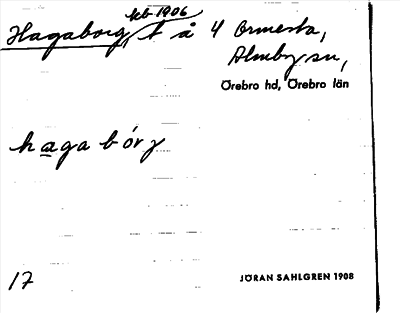 feb 1906
Hagaborg, t å 4 Ormesta,
Almby sn,
Örebro hd, Örebro län
haga bórg
17
JÖRAN SAHLGREN 1908